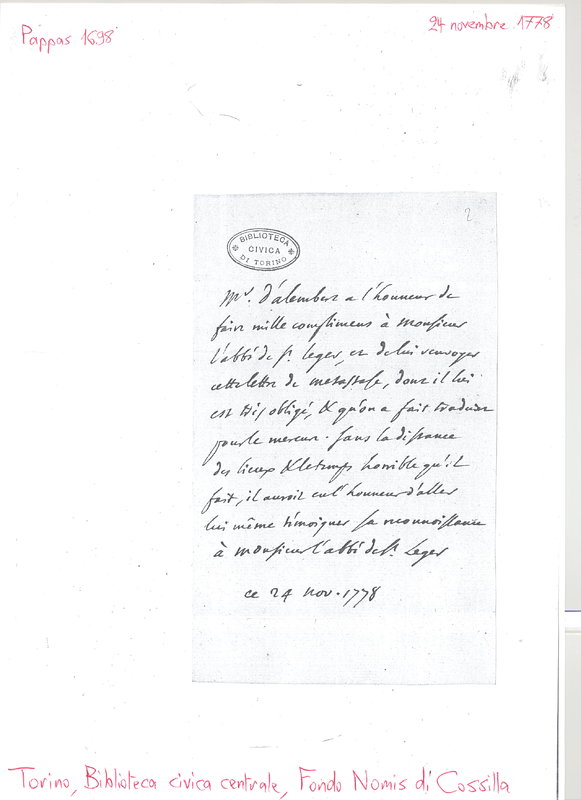 Pappas 1698
24 novembre 1778
2
BIBLIOTECA
CIVICA
DI TORINO
Mr. d'alembert a l'honneur de
faire mille complimens à monsieur
l'abbé de St. Leger, et de lui renvoyer
cette lettre de metastase, dont il lui
est très obligé, & qu'on a fait traduire
pour le mercure. sans la distance
des lieux & le temps horrible qu'il
fait, il auroit eu l'honneur d'aller
lui même témoigner sa reconnoissance
à monsieur l'abbé de St. Leger
ce 24 nov. 1778
Torino, Biblioteca civica centrale, Fondo Nomis di Cossilla